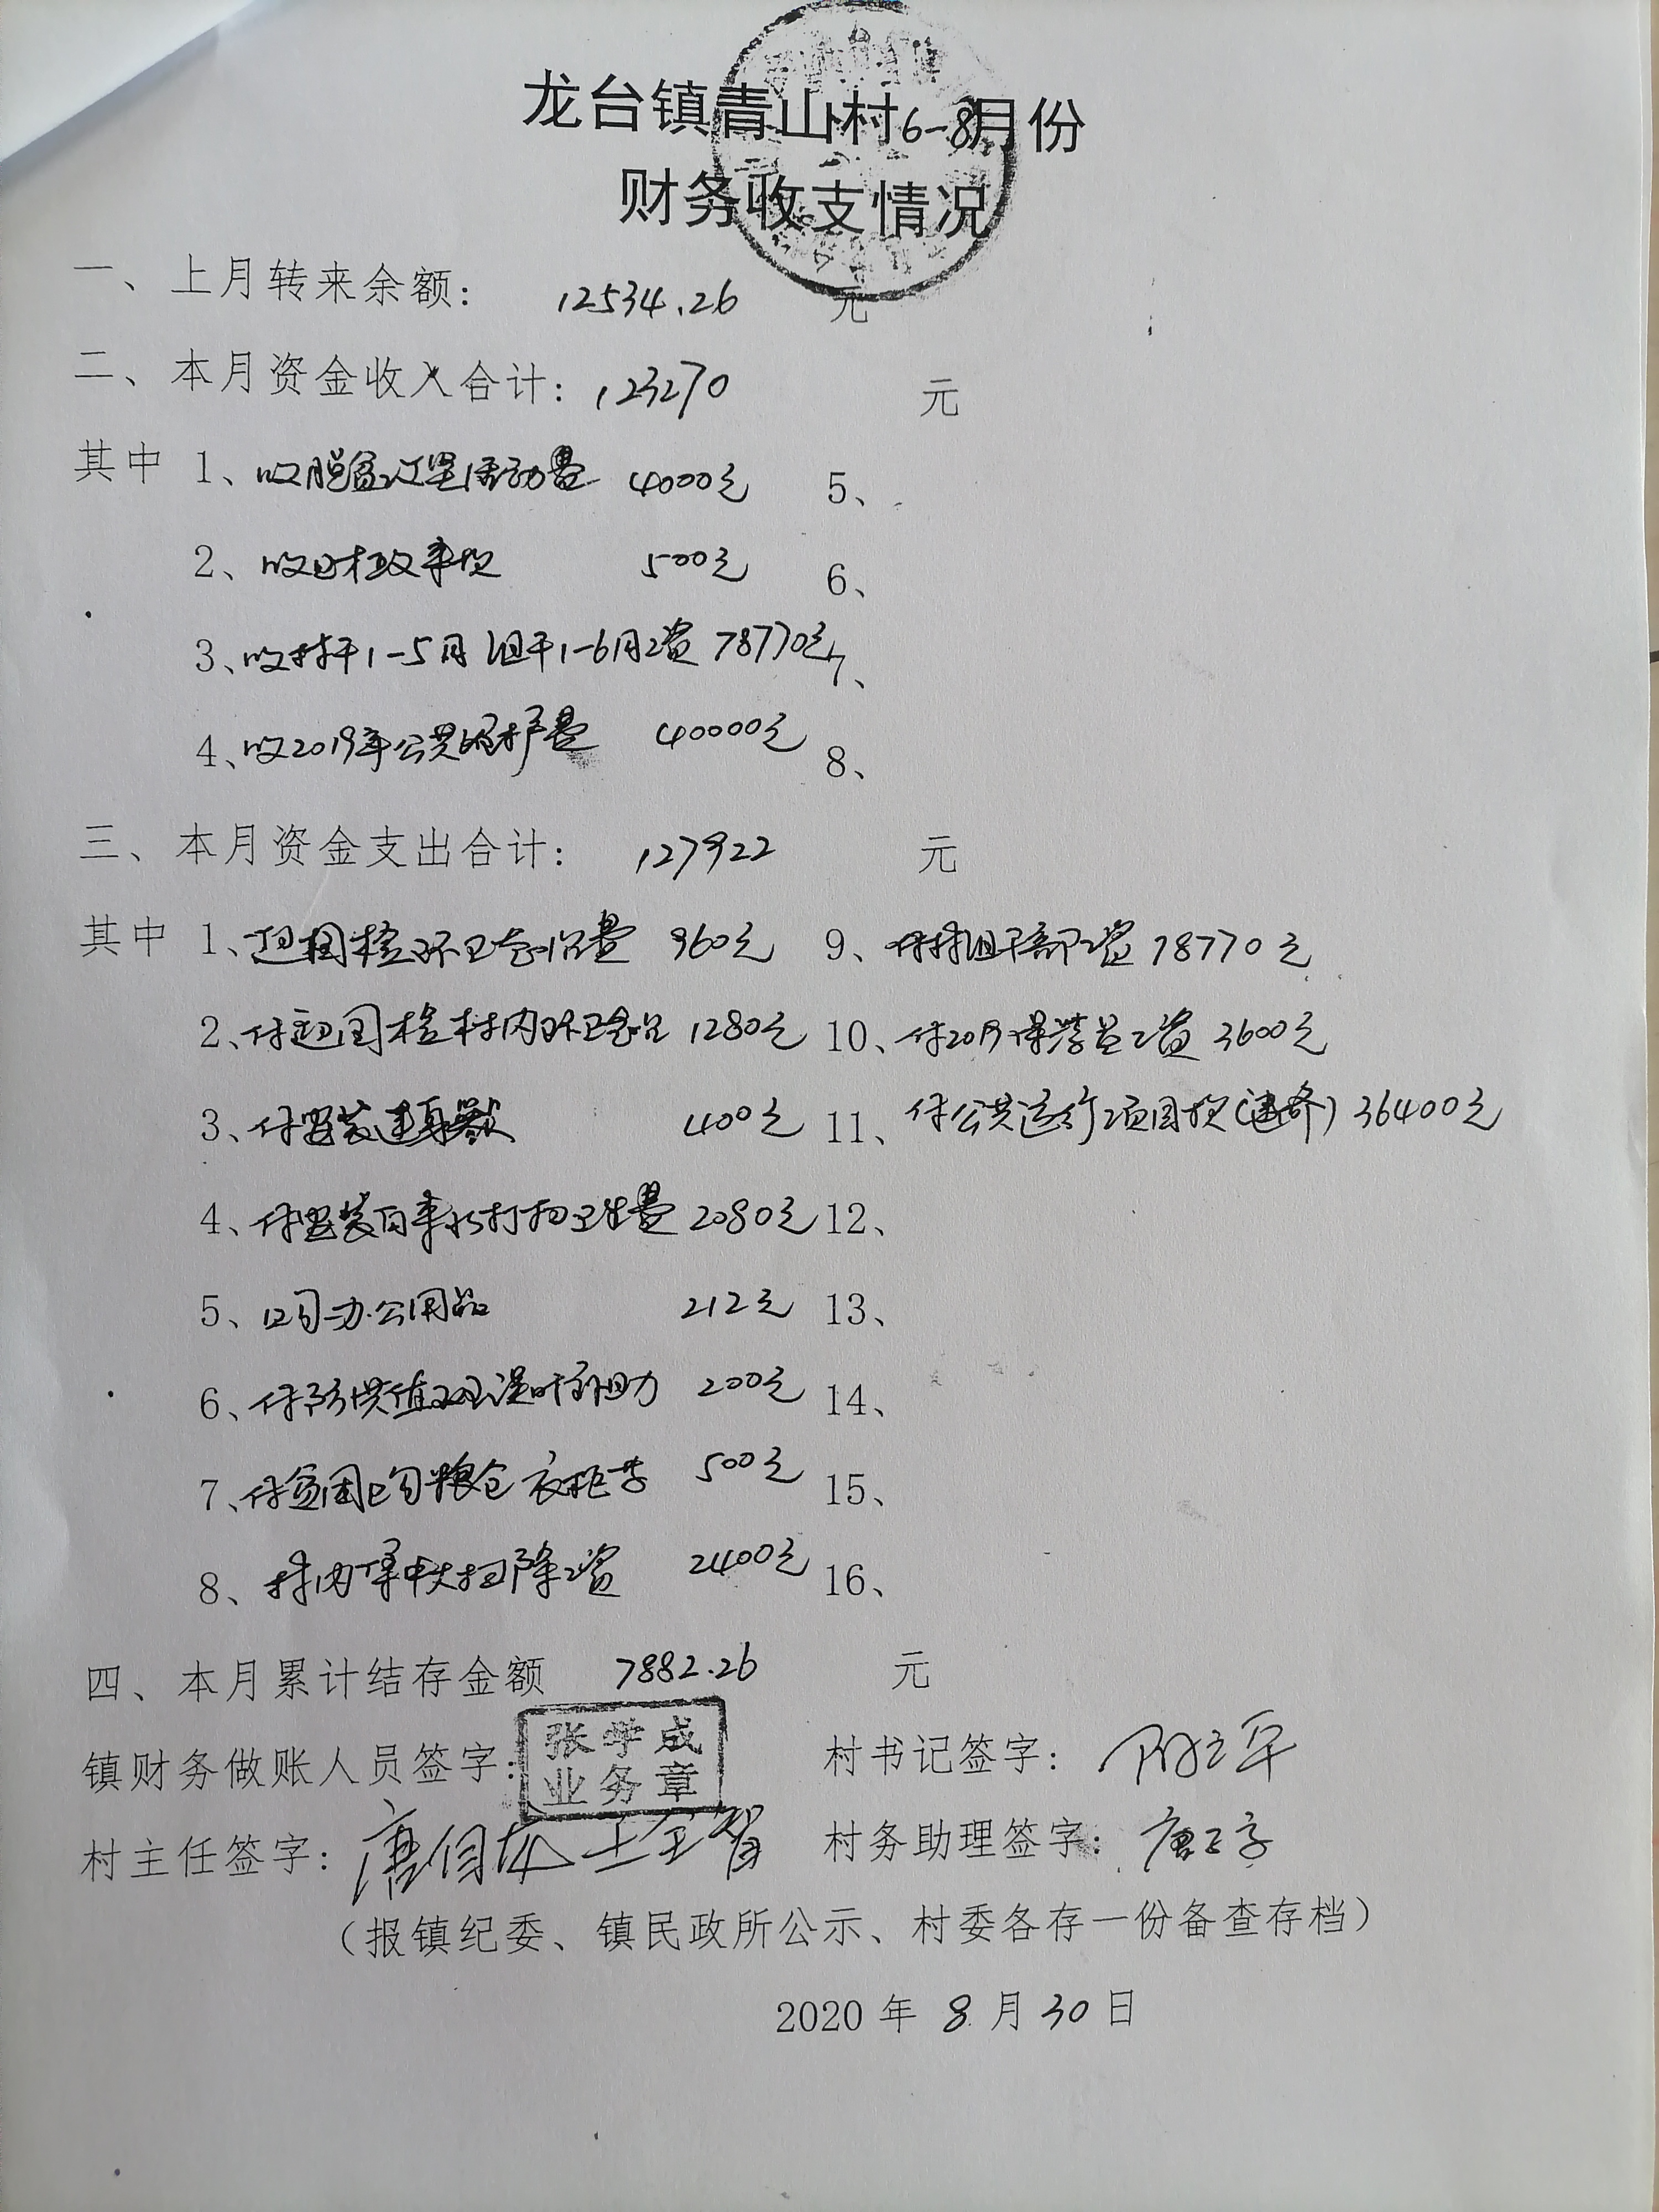 龙台镇青山村6-8月份
财务收支情况
一、上月转来余额: 12534.26 元
二、本月资金收入合计: 123270 元
其中 1、收脱贫攻坚活动费 4000元 5、
2、收日村政末款 500元 6、
3、收村干1-5月组干1-6月工资 78770元 7、
4、收2019年公共服护费 40000元 8、
三、本月资金支出合计: 127922 元
其中 1、迎国检环卫费 960元 9、付村组干部工资 78770元
2、付迎国检村内环卫 1280元 10、付2019保洁员工资 3600元
3、付安装 400元 11、付公共运行项目款(道路) 36400元
4、付安装自来水打扫卫生费 2080元 12、
5、购办公用品 212元 13、
6、付防洪值误时补助 200元 14、
7、付贫困购粮仓衣柜等 500元 15、
8、村内集中大扫除工资 2400元 16、
四、本月累计结存金额 7882.26 元
镇财务做账人员签字: 张学成 业务章 村书记签字:
村主任签字: 村务助理签字:
（报镇纪委、镇民政所公示、村委各存一份备查存档）
2020年8月30日